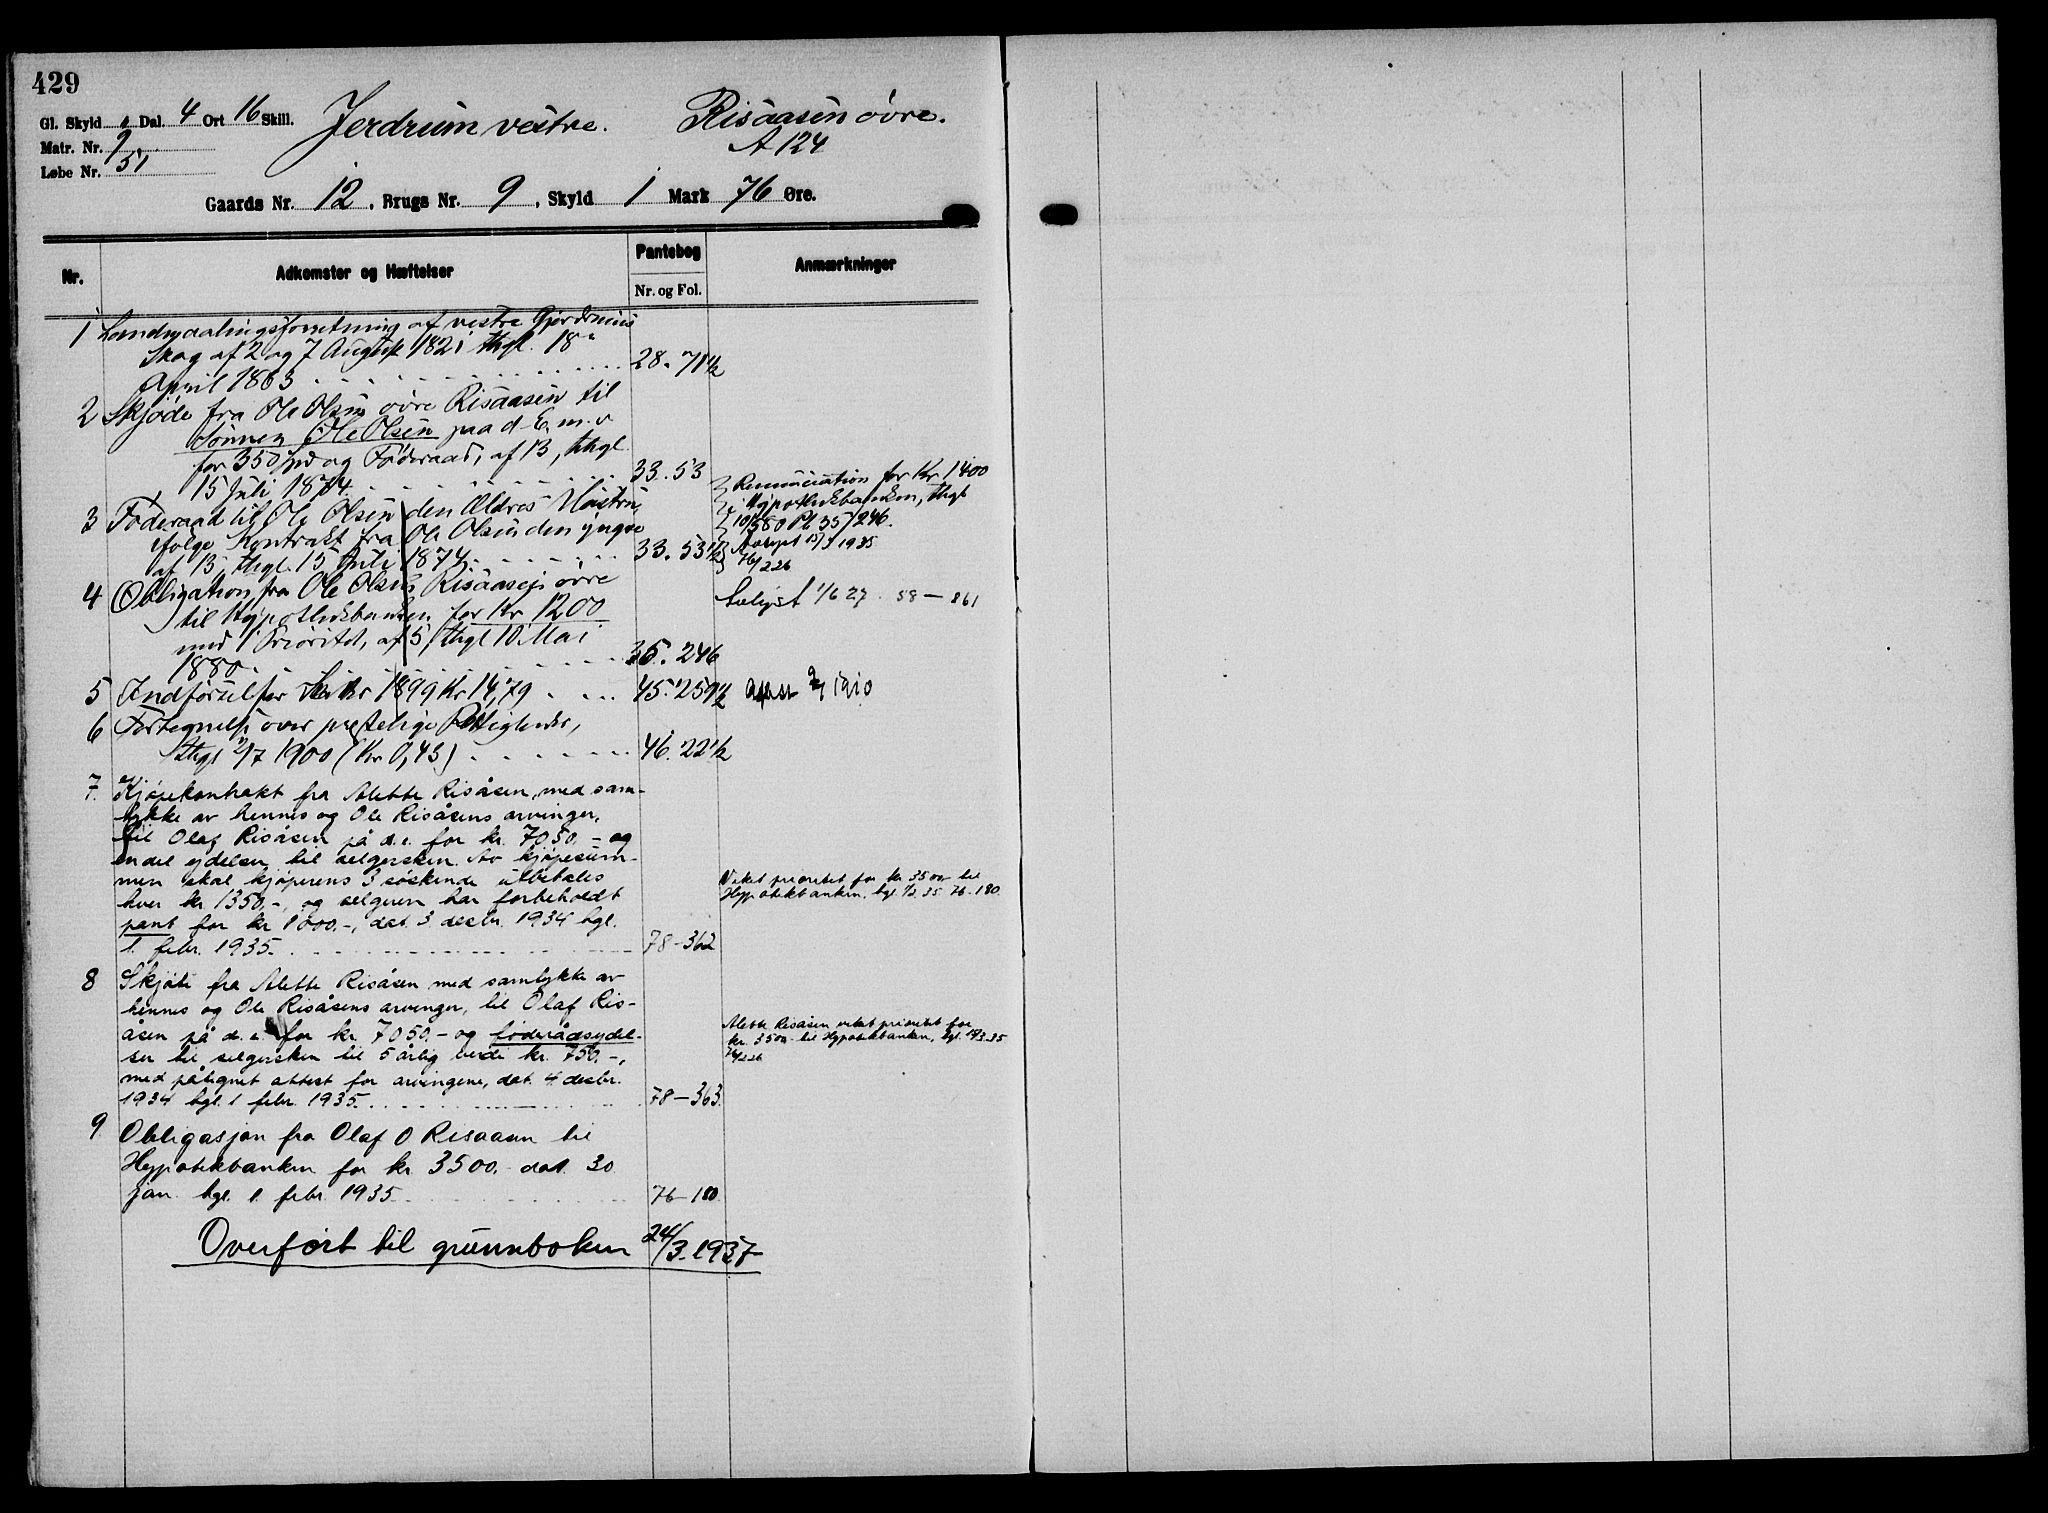 429
Gl. Skyld " Dal. 4 Ort 16 Skill.
Jerdrum vestre.
Risaasen övre.
A 124
Matr. Nr. 9
Løbe Nr. 51
Gaards Nr. 12, Brugs Nr. 9, Skyld 1 Mark 76 Øre.
Nr.
Adkomster og Hæftelser
Pantebog
Nr. og Fol.
Anmærkninger
1 Landmaalingsforretning af vestre Gjerdrums
Skog af 2 og 7 August 1821 thgl. 18
April 1863 28. 71½
2 Skjöde fra Ole Olsen övre Risaasen til
Sönnen Ole Olsen paa d. E. m. v
for 350 Spd og Föderaad, af 13, thgl
15 Juli 1874. 33. 53
3 Föderaad til Ole Olsen den Ældres Hustru,
ifölge Kontrakt fra Ole Olsen den yngre
af 13, thgl. 15 Juli 1874. 33. 53½
Renunciation for Kr. 1400
i Hypothekbanken, thgl
10/5 80 Pb 35/246.
Avlyst 15/3 1935
76/226
4 Obligation fra Ole Olsen Risaasen övre
til Hypothekbanken for Kr 1200
med 1 Prioritet, af 5, thgl 10 Mai
1880 35. 246
Avlyst 1/6 27. 58 - 861
5 Indförsel for Skr 1899 Kr 14,79 45. 259½
1910
6 Fortegnelse over prestelige Rettigheder,
thgl 2/7 1900 (Kr 0,43) 46. 22½
7. Kjøpekontrakt fra Alette Risåsen, med sam-
tykke av hennes og Ole Risåsens arvinger,
til Olaf Risåsen på d. e. for kr. 7050,- og
endel ydelser til selgersken. Av kjøpesum-
men skal kjøperens 3 søskende utbetales
hver kr. 1350,-, og selgeren har forbeholdt
pant for kr 1000.-, dat. 3 desbr. 1934 tgl.
1. febr. 1935. 78-362
Veket prioritet for kr. 3500 til
Hypotekbanken, tgl 1/2 35 76-180.
8 Skjøte fra Alette Risåsen med samtykke av
hennes og Ole Risåsens arvinger, til Olaf Ris-
åsen på d. e. for kr. 7050.- og føderådsydel-
ser til selgersken til 5 årlig verdi kr. 750.-,
med påtegnet attest for arvingene, dat. 4 desbr.
1934 tgl. 1 febr. 1935. 78-363.
Alette Risåsen veket prioritet for
kr. 3500 til Hypotekbanken, tgl. 15/3 35
76/226
9. Obligasjon fra Olaf O Risaasen til
Hypotekbanken for kr. 3500.- dat. 30
jan. tgl. 1. febr. 1935 76-180.
Overført til grunnboken 24/3.1937